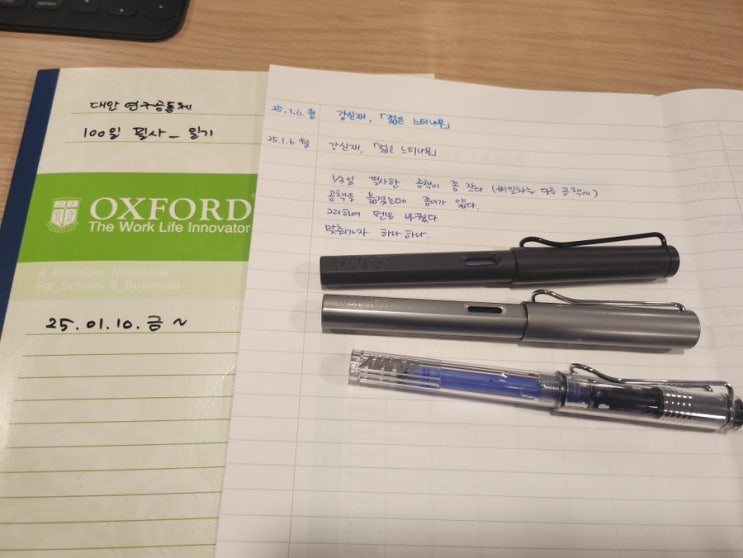 대안연구공동체
100일 필사_일기
OXFORD
The Work Life Innovator
A Premium Notebook
For School & Business
25.01.10.금 ~
25.1.6.월 강신재, 「젊은 느티나무」
25.1.6 월 강신재, 「젊은 느티나무」
필사한 공책이 좀 작다. 다른 공책에)
공책을 옮겼는데 종이가 얇다.
그리하여 펜을 바꿨다.
맞춰가자 하나하나.
LAMY